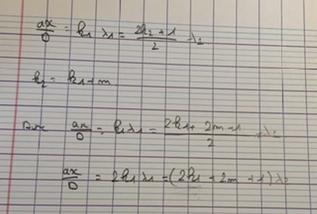 ax/D = k₁ λ₁ = (2k₂ + 1)/2 λ₂
k₂ = k₁ + m
Donc ax/D = k₁ λ₁ = (2k₁ + 2m + 1)/2 λ₂
ax/D = 2k₁ λ₁ = (2k₁ + 2m + 1) λ₂